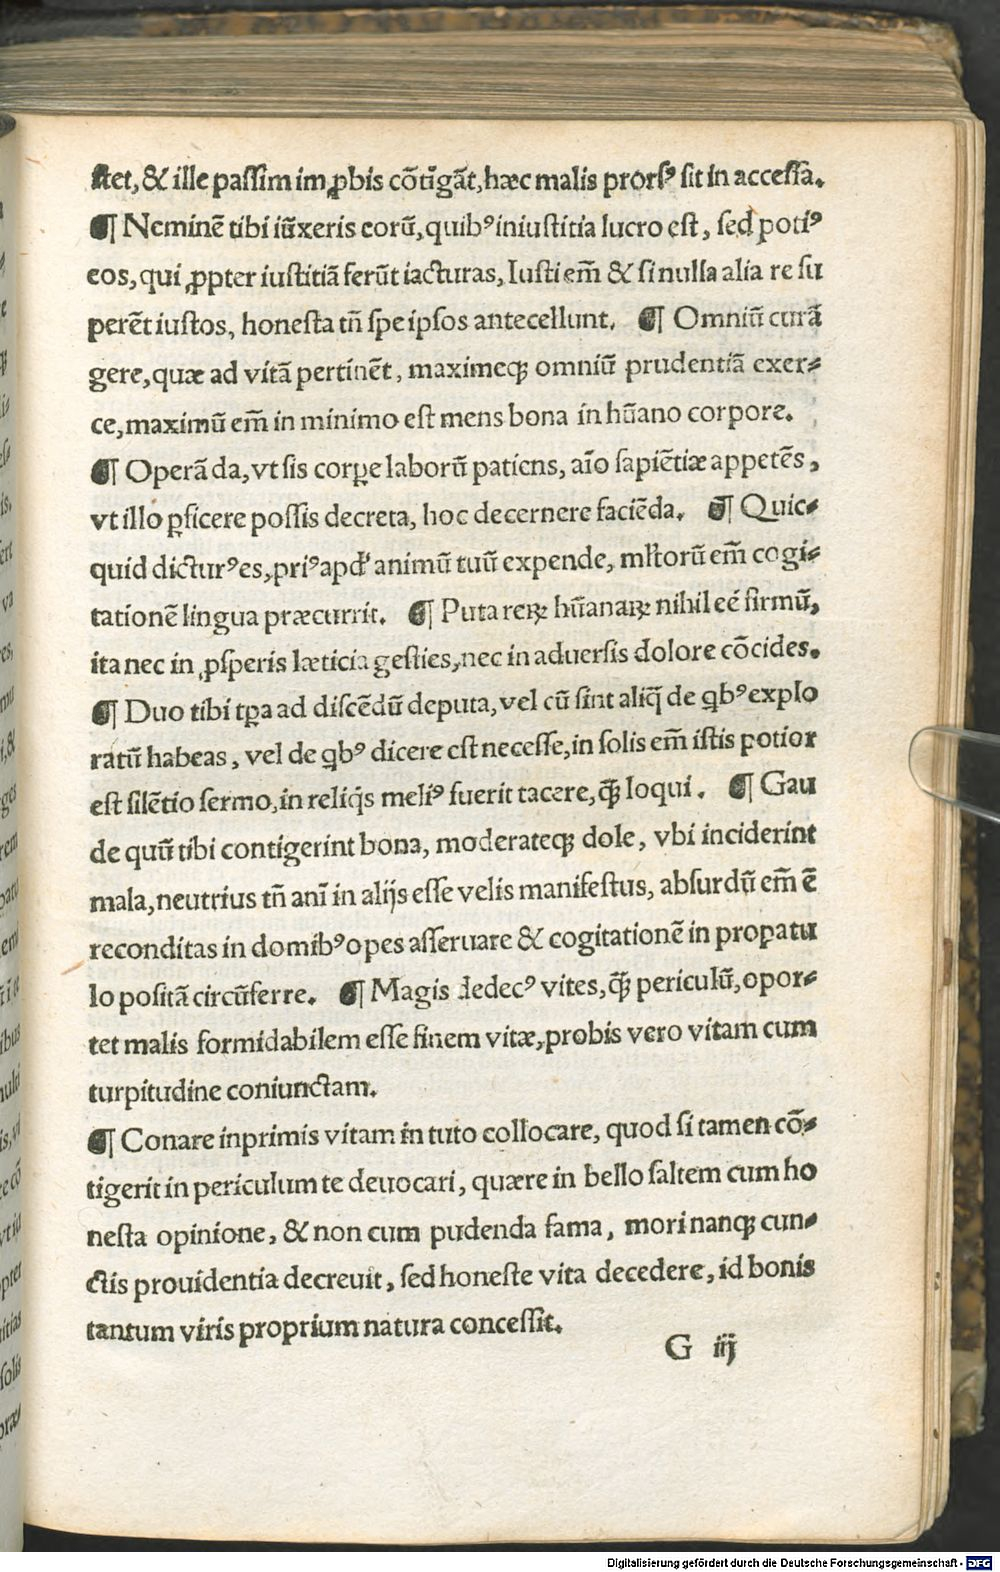 ſtet, & ille paſſim im ꝓbis cõtīgãt, hæc malis prorſꝰ ſit in acceſſa.
¶ Neminẽ tibi iũxeris eorũ, quibꝰ iniuſtitia lucro eſt, ſed potiꝰ
eos, qui ꝓpter iuſtitiã ferũt iacturas, Iuſti em̃ & ſi nulla alia re ſu
perẽt iuſtos, honeſta tñ ſpe ipſos antecellunt. ¶ Omniũ curã
gere, quæ ad vitã pertinẽt, maximeqꝫ omniũ prudentiã exer⸗
ce, maximũ em̃ in minimo eſt mens bona in hũano corpore.
¶ Operã da, vt ſis corꝑe laborũ patiens, aĩo ſapiẽtiæ appetẽs,
vt illo ꝑficere poſſis decreta, hoc decernere faciẽda. ¶ Quic⸗
quid dicturꝰ es, priꝰ apđ animũ tuũ expende, mĺtorũ em̃ cogi⸗
tationẽ lingua præcurrit. ¶ Puta reꝝ hũanaꝝ nihil eé firmũ,
ita nec in ꝓſperis læticia geſties, nec in aduerſis dolore cõcides.
¶ Duo tibi tꝑa ad diſcẽdũ deputa, vel cũ ſint aliq̃ de qbꝰ explo
ratũ habeas, vel de qbꝰ dicere eſt neceſſe, in ſolis em̃ iſtis potior
eſt ſilẽtio ſermo, in reliq̃s meliꝰ fuerit tacere, q̃ꝫ loqui. ¶ Gau
de quũ tibi contigerint bona, moderateqꝫ dole, vbi inciderint
mala, neutrius tñ anĩ in alijs eſſe velis manifeſtus, abſurdũ em̃ ẽ
reconditas in domibꝰ opes aſſeruare & cogitationẽ in propatu
lo poſitã circũferre. ¶ Magis dedecꝰ vites, q̃ꝫ periculũ, opor⸗
tet malis formidabilem eſſe finem vitæ, probis vero vitam cum
turpitudine coniunctam.
¶ Conare inprimis vitam in tuto collocare, quod ſi tamen cõ⸗
tigerit in periculum te deuocari, quære in bello ſaltem cum ho
neſta opinione, & non cum pudenda fama, mori nanqꝫ cun⸗
ctis prouidentia decreuit, ſed honeſte vita decedere, id bonis
tantum viris proprium natura conceſſit.
G iij
Digitalisierung gefördert durch die Deutsche Forschungsgemeinschaft - DFG